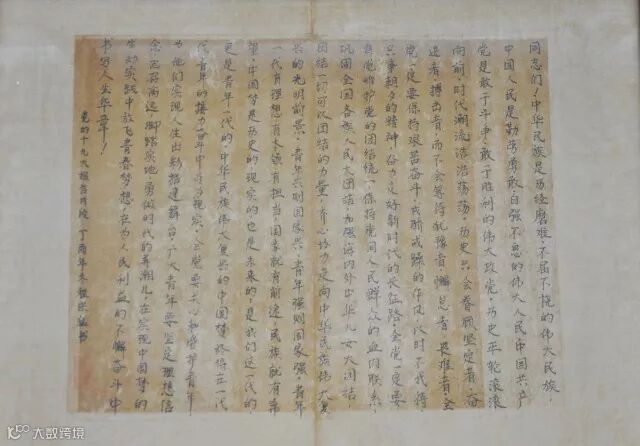 同志们！中华民族是历经磨难、不屈不挠的伟大民族，
中国人民是勤劳勇敢、自强不息的伟大人民，中国共产
党是敢于斗争、敢于胜利的伟大政党。历史车轮滚滚
向前，时代潮流浩浩荡荡。历史只会眷顾坚定者、奋
进者、搏击者，而不会等待犹豫者、懈怠者、畏难者。全
党一定要保持艰苦奋斗、戒骄戒躁的作风，以时不我待、
只争朝夕的精神，奋力走好新时代的长征路。全党一定要
自觉维护党的团结统一，保持党同人民群众的血肉联系，
巩固全国各族人民大团结，加强海内外中华儿女大团结，
团结一切可以团结的力量，齐心协力走向中华民族伟大复
兴的光明前景。青年兴则国家兴，青年强则国家强。青年
一代有理想、有本领、有担当，国家就有前途，民族就有希
望。中国梦是历史的、现实的，也是未来的；是我们这一代的，
更是青年一代的。中华民族伟大复兴的中国梦终将在一代
代青年的接力奋斗中变为现实。全党要关心和爱护青年，
为他们实现人生出彩搭建舞台。广大青年要坚定理想信
念，志存高远，脚踏实地，勇做时代的弄潮儿，在实现中国梦的
生动实践中放飞青春梦想，在为人民利益的不懈奋斗中
书写人生华章！
党的十九大报告片段 丁酉年 书
大数跨境